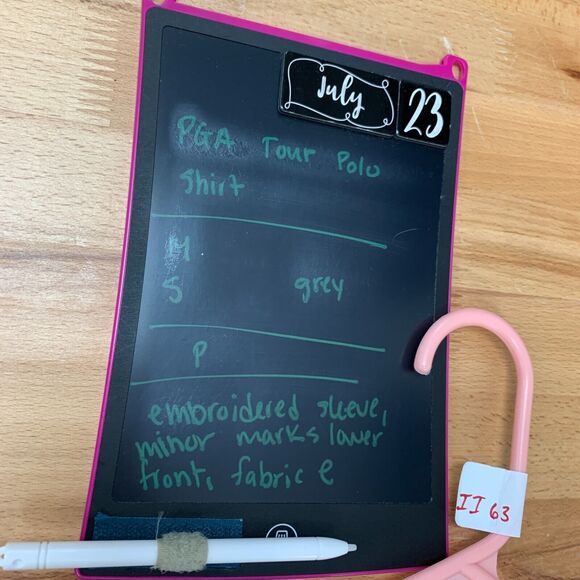 July 23
PGA Tour Polo
Shirt
M
S grey
P
embroidered sleeve,
minor marks lower
front, fabric e
II 63